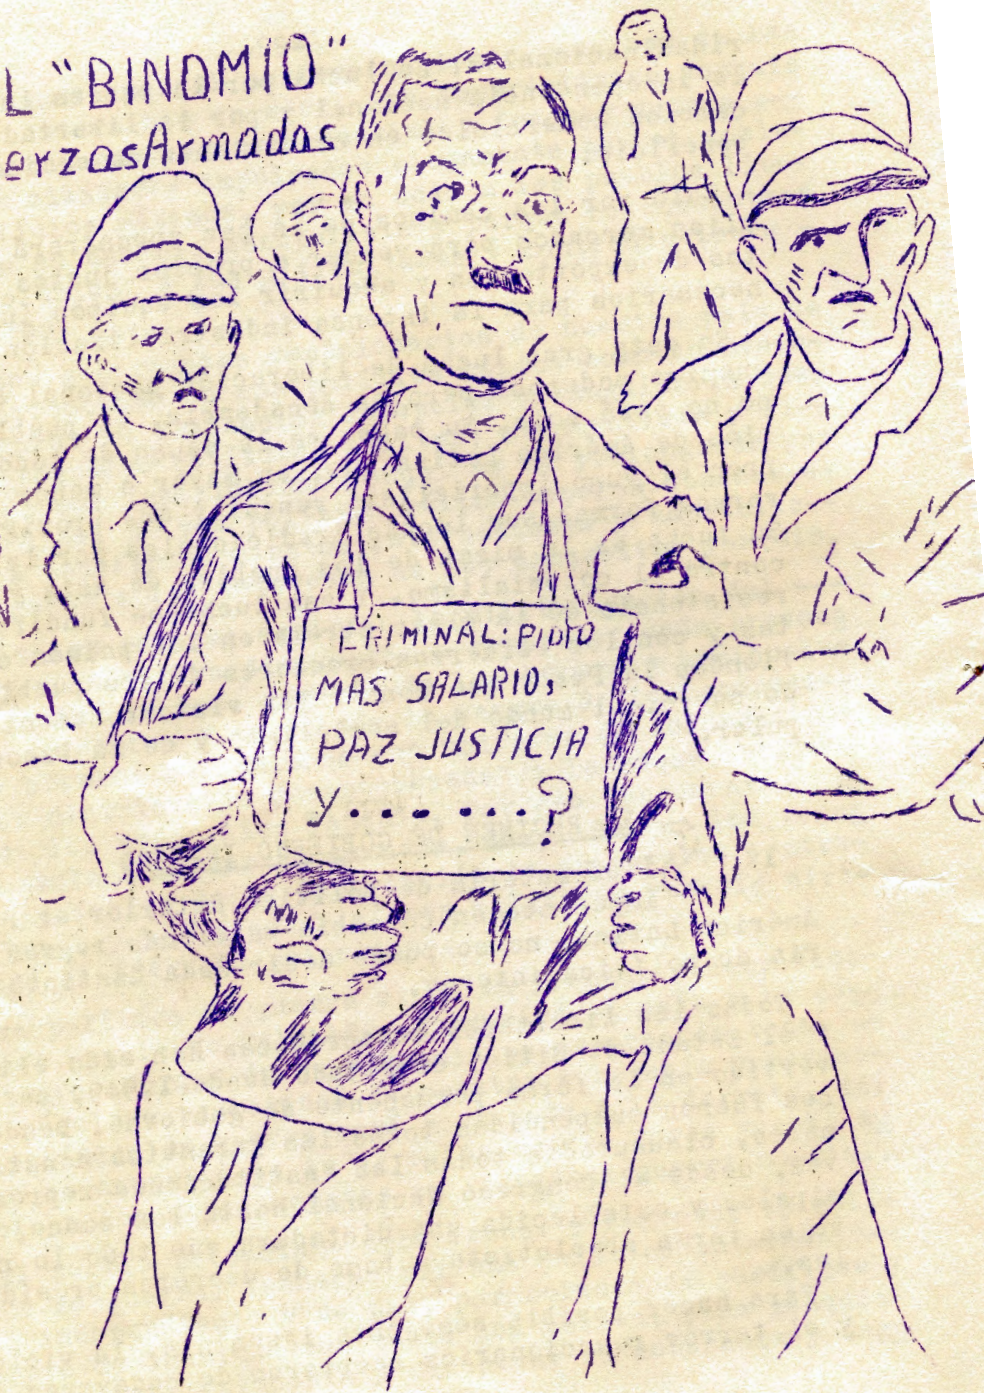 L "BINOMIO"
erzasArmadas
CRIMINAL: PIDIO
MAS SALARIO,
PAZ JUSTICIA
Y.......?